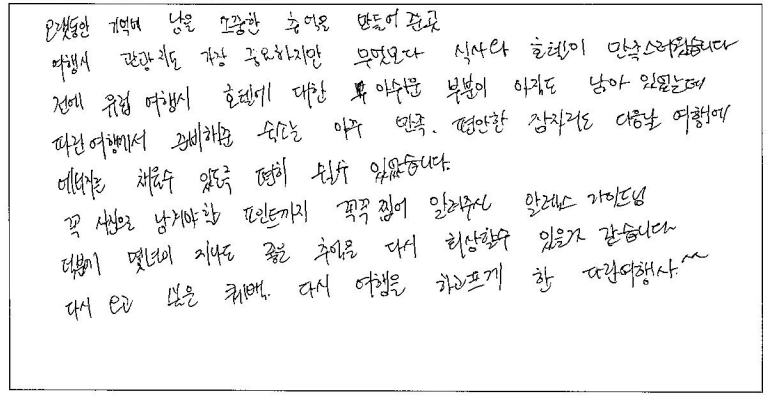 오랫동안 기억에 남을 소중한 추억을 만들어 준곳
여행시 관광지도 가장 중요하지만 무엇보다 식사와 호텔이 만족스러웠습니다
전에 유럽 여행시 호텔에 대한 아쉬운 부분이 아직도 남아 있었는데
파란여행에서 준비해준 숙소는 아주 만족. 편안한 잠자리로 다음날 여행에
에너지를 채울수 있도록 편히 쉴수 있었습니다.
꼭 사진으로 남겨야 할 포인트까지 꼭꼭 찝어 알려주신 알렉스 가이드님
덕분에 몇년이 지나도 좋을 추억을 다시 회상할수 있을거 같습니다
다시 오고 싶은 퀘백. 다시 여행을 하고프게 한 파란여행사.^^